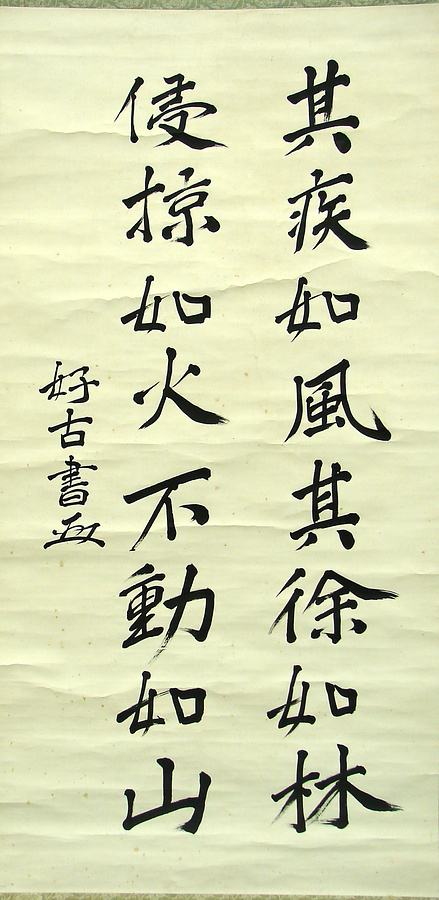 其疾如風其徐如林
侵掠如火不動如山
好古書